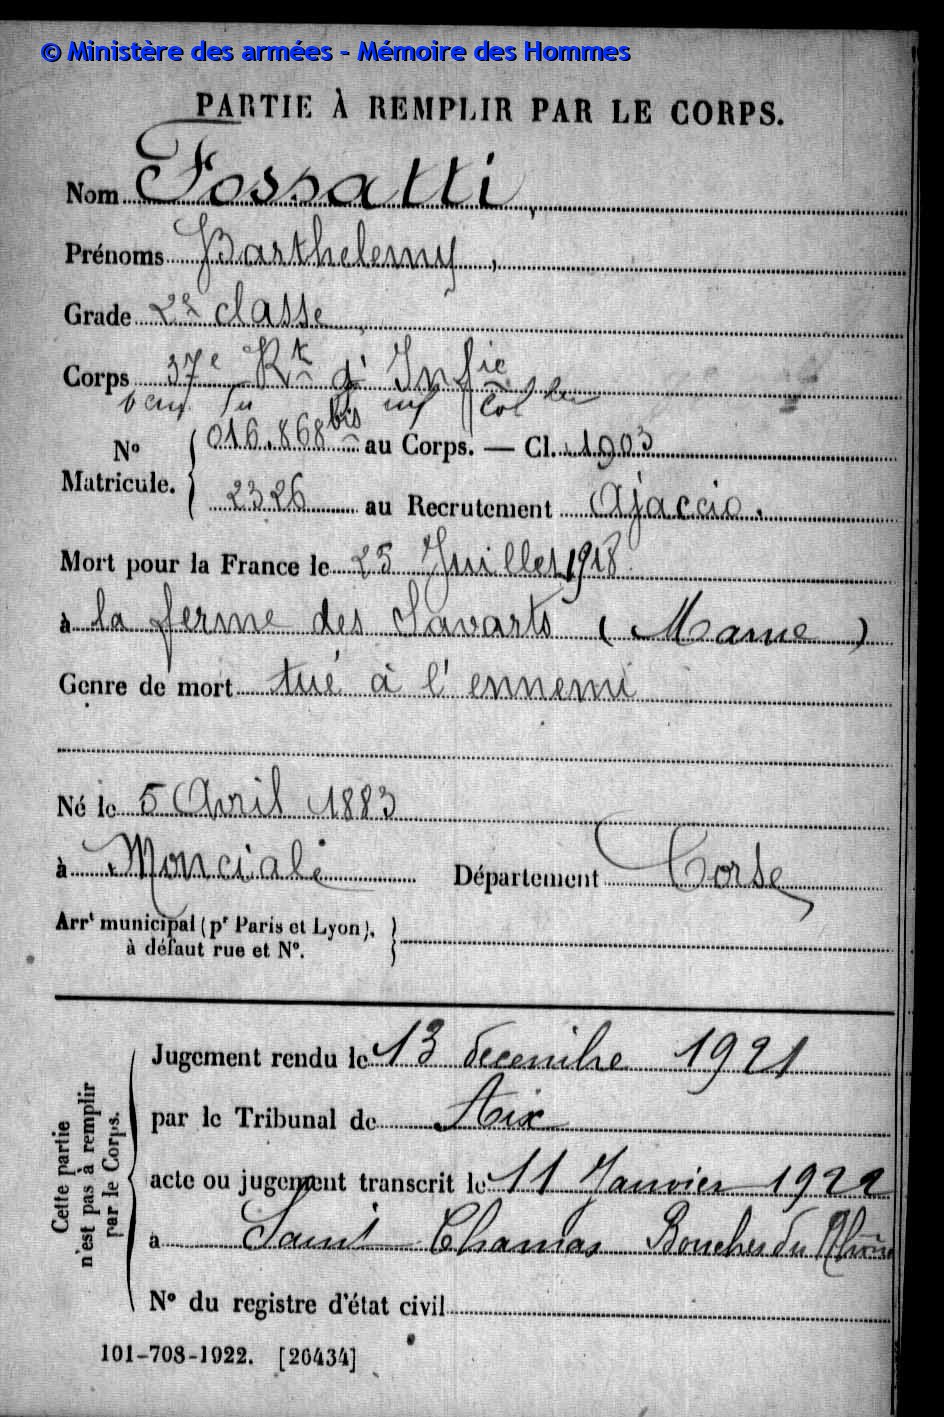 © Ministère des armées - Mémoire des Hommes
PARTIE À REMPLIR PAR LE CORPS.
Nom Fossatti,
Prénoms Barthelemy,
Grade 2e classe
Corps 37e Rt d'Infie
inf Col
No Matricule. 016.868 bis au Corps. — Cl. 1903
2326 au Recrutement Ajaccio.
Mort pour la France le 25 Juillet 1918
à la ferme des Savarts (Marne)
Genre de mort tué à l'ennemi
Né le 5 Avril 1883
à Monciale Département Corse
Arrt municipal (pr Paris et Lyon),
à défaut rue et No.
Cette partie
n'est pas à remplir
par le Corps.
Jugement rendu le 13 decembre 1921
par le Tribunal de Aix
acte ou jugement transcrit le 11 Janvier 1922
à Saint Chamas Bouches du Rhône
No du registre d'état civil
101-708-1922. [26434]